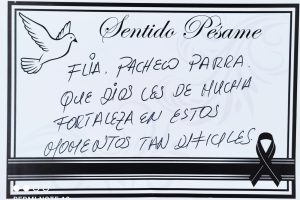 Sentido Pésame
FLIA. PACHECO PARRA.
QUE DIOS LES DE MUCHA
FORTALEZA EN ESTOS
MOMENTOS TAN DIFICILES
REDMI NOTE 10